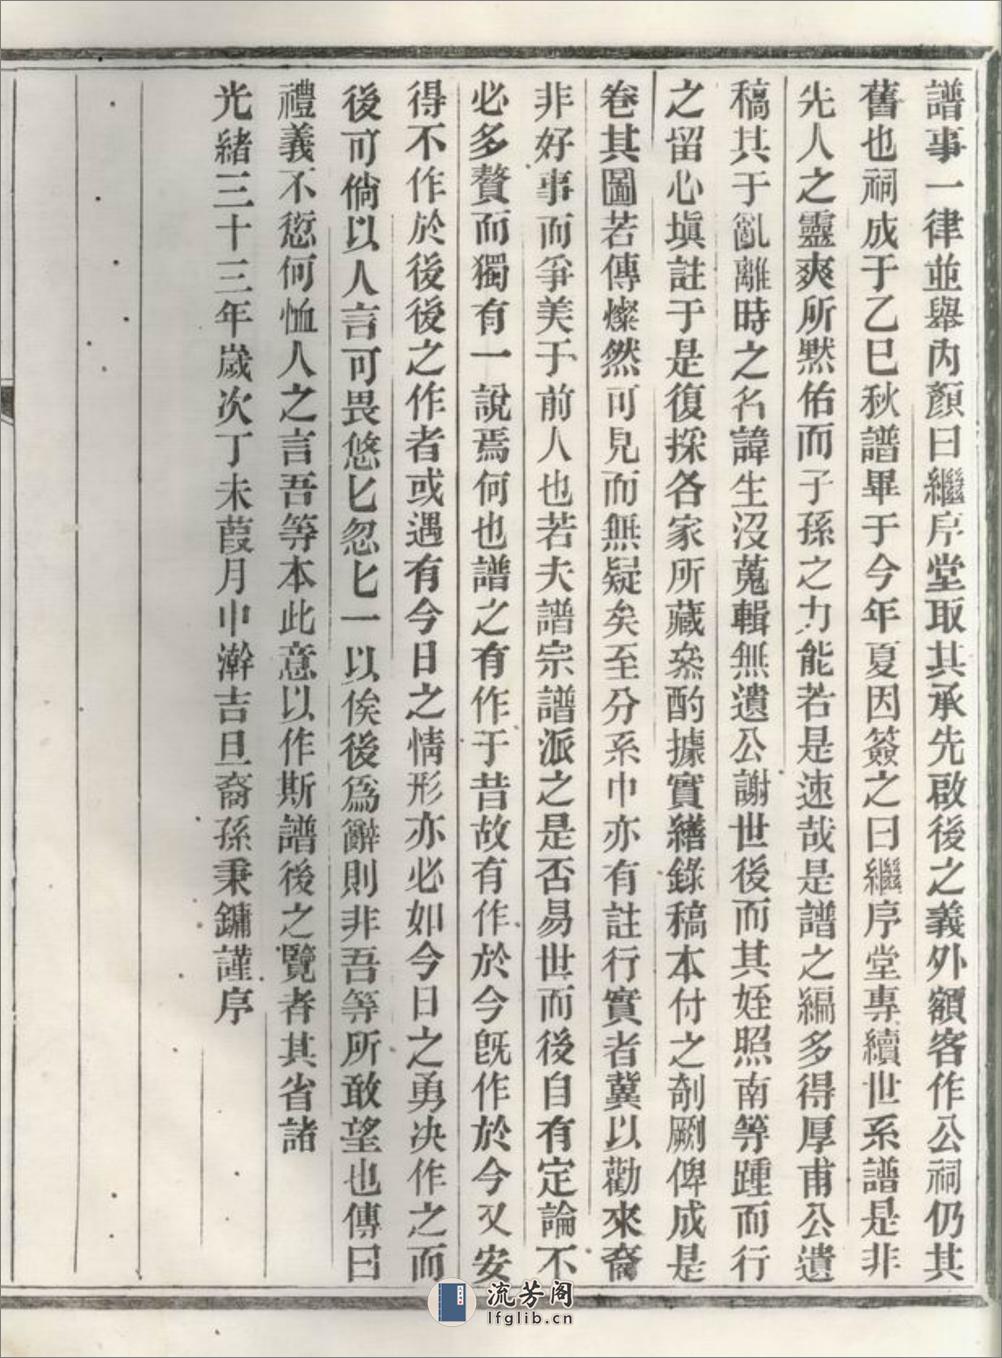 譜事一律並舉內顏曰繼序堂取其承先啟後之義外額客作公祠仍其
舊也祠成于乙巳秋譜畢于今年夏因簽之曰繼序堂專續世系譜是非
先人之靈爽所默佑而子孫之力能若是速哉是譜之編多得厚甫公遺
稿其于亂離時之名諱生沒蒐輯無遺公謝世後而其姪照南等踵而行
之留心塡註于是復採各家所藏叅酌據實繕錄稿本付之剞劂俾成是
卷其圖若傳燦然可見而無疑矣至分系巾亦有註行實者冀以勸來裔
非好事而爭美于前人也若夫譜宗譜派之是否易世而後自有定論不
必多贅而獨有一說焉何也譜之有作于昔故有作於今旣作於今又安
得不作於後後之作者或遇有今日之情形亦必如今日之勇决作之而
後可倘以人言可畏悠匕忽匕一以俟後爲辭則非吾等所敢望也傳曰
禮義不愆何恤人之言吾等本此意以作斯譜後之覽者其省諸
光緒三十三年歲次丁未葭月中澣吉旦裔孫秉鏞謹序
流芳阁
lfglib.cn